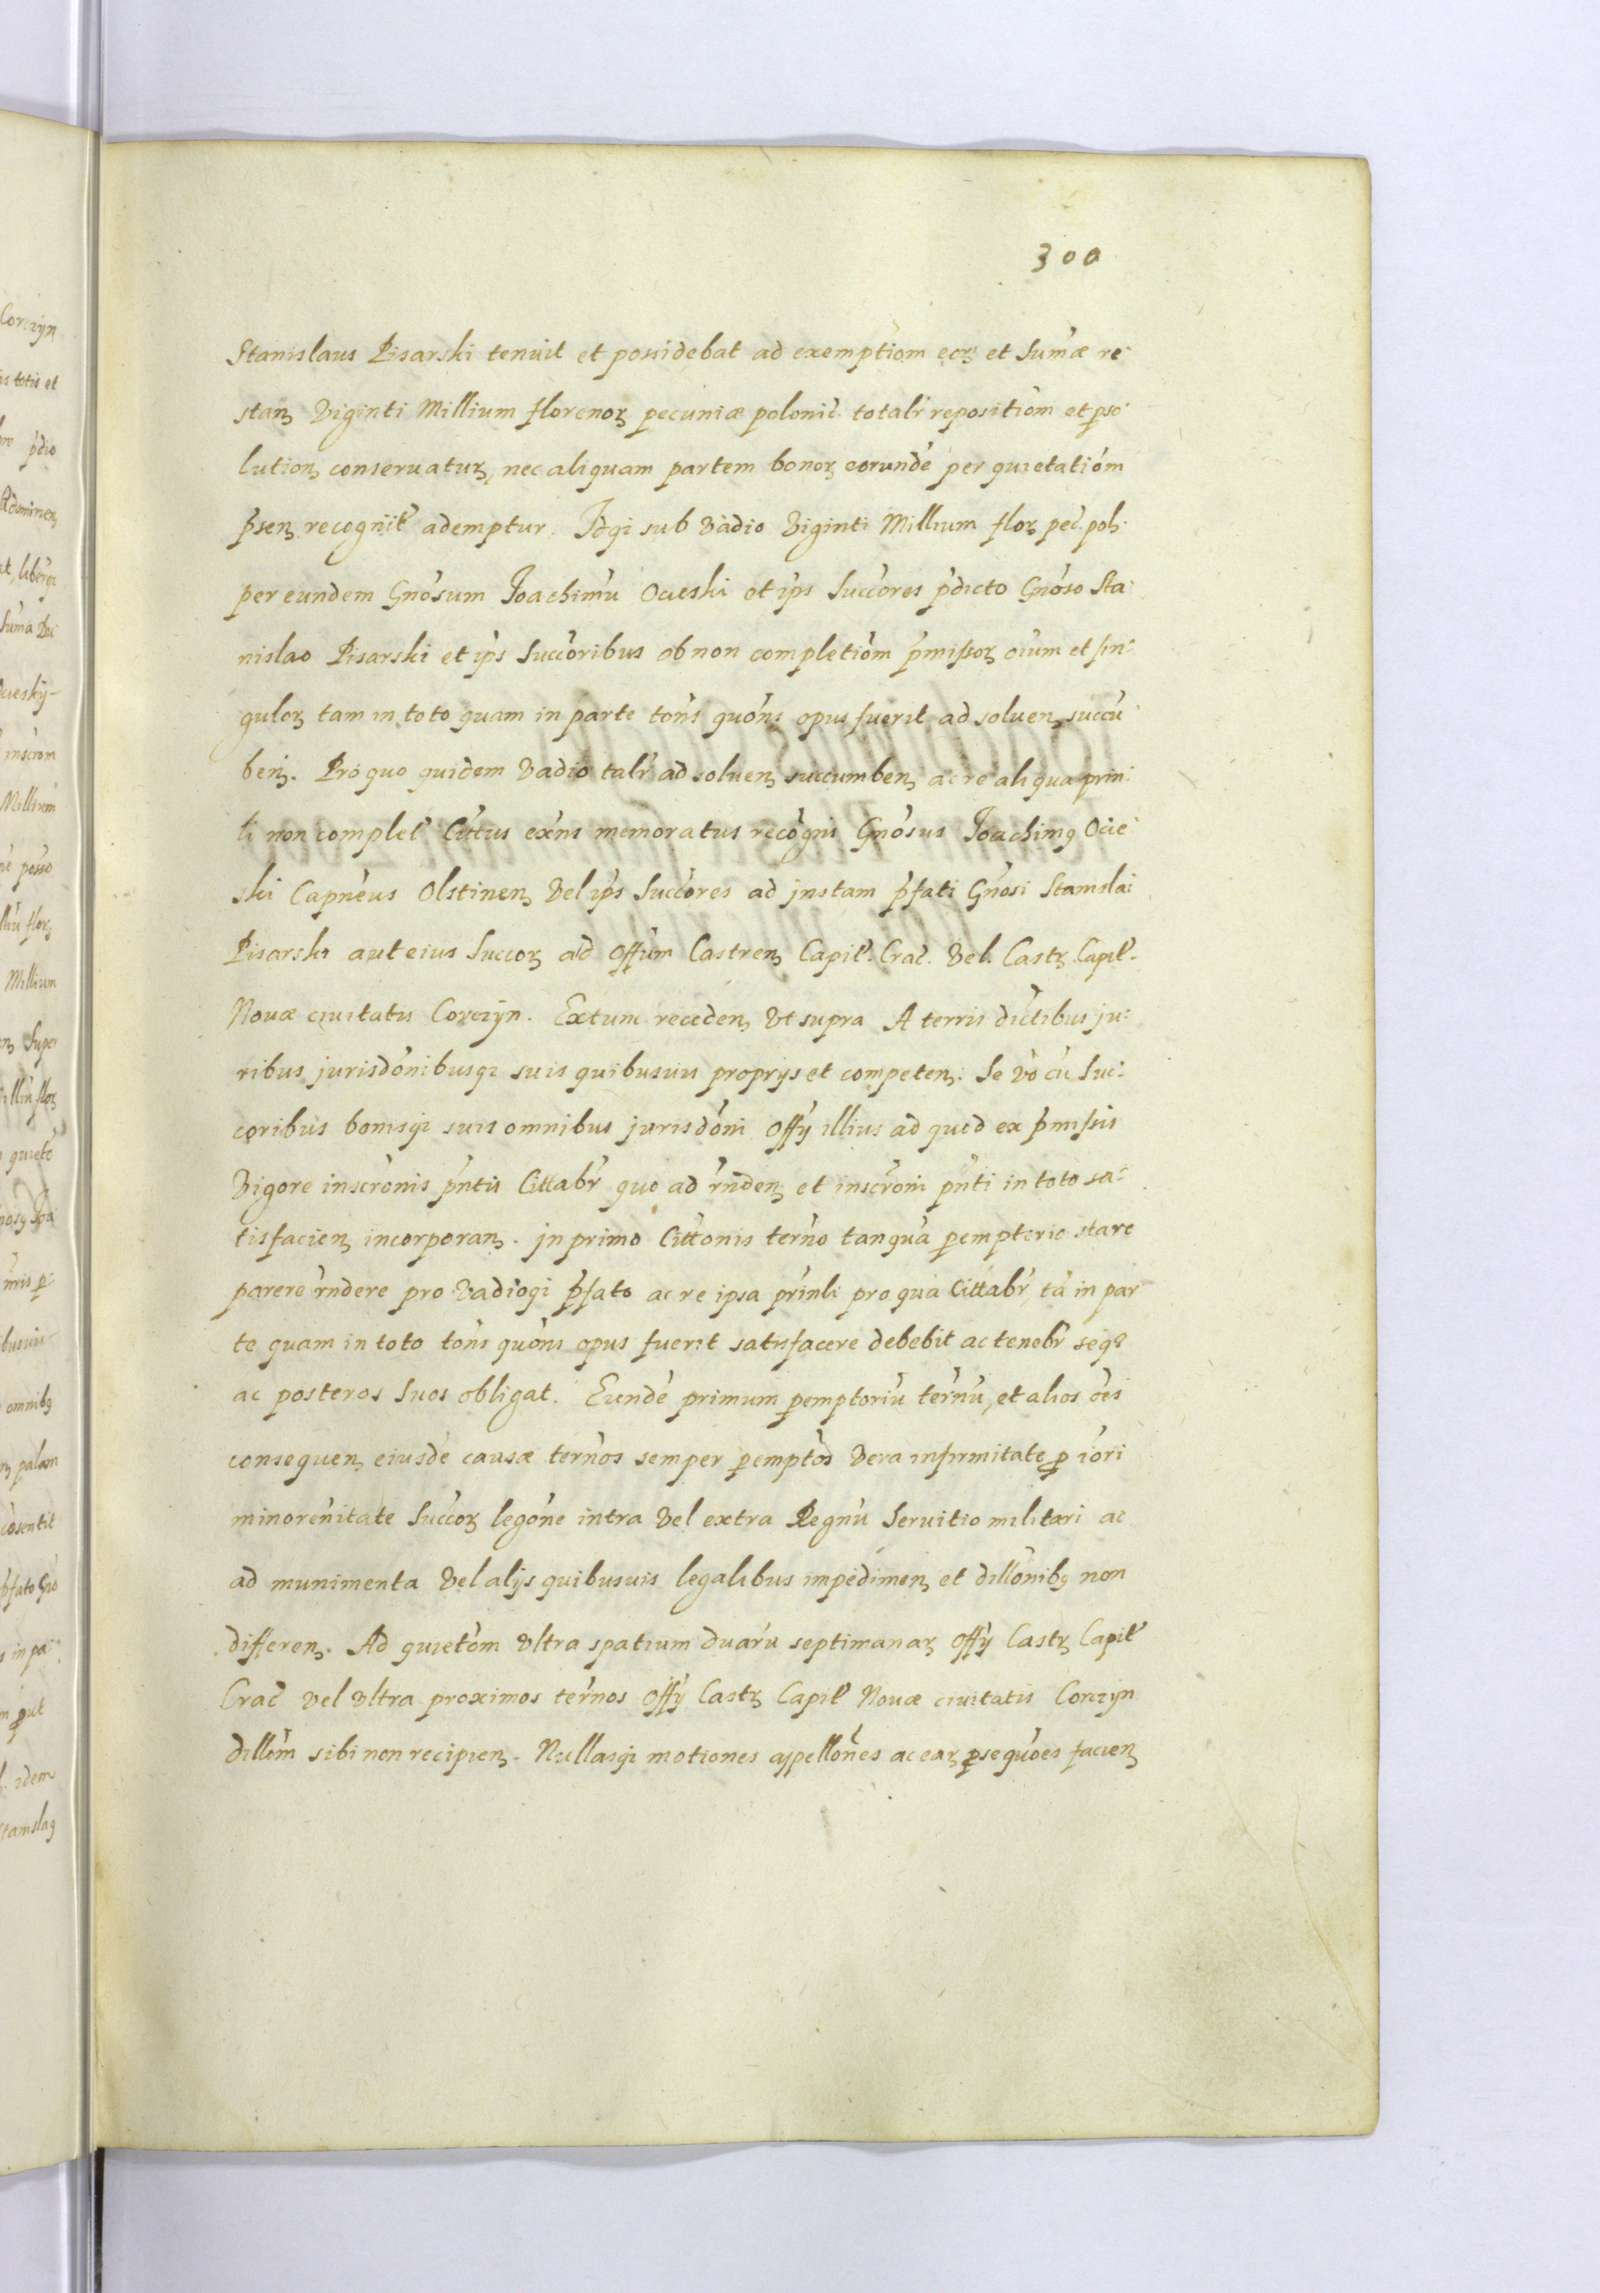 300
Stanislaus Pisarski tenuit et possidebat ad exemptiom eorꝫ et Sumæ re-
stanꝫ Viginti Millium florenorꝫ pecuniæ polonic. totalr repositiom et pso-
lutionꝫ conseruaturꝫ, nec aliquam partem bonorꝫ eorunde per quietatiom
psenꝫ recognit ademptur. Idqꝫ sub Vadio Viginti Millium florꝫ pec. polꝫ.
per eundem Gnosum Joachimu Ocieski et ips Succores pdicto Gnoso Sta-
nislao Pisarski et ips Succoribus ob non completiom pmissorꝫ oium et sin-
gulorꝫ tam in toto quam in parte tons quons opus fuerit ad soluenꝫ succu-
benꝫ. Pro quo quidem Vadio talr ad soluenꝫ succumbenꝫ ac re aliqua prin-
li non complet Cittus exns memoratus recognis Gnosus Joachimꝰ Ocie-
ski Capneus Olstinenꝫ Vel ips Succores ad instam pfati Gnosi Stanislai
Pisarski aut eius Succorꝫ ad Offum Castrenꝫ Capit. Crac. Vel. Castrꝫ Capit.
Nouæ ciuitatis Corczyn. Extunc recedenꝫ Vt supra A terris dictibus ju-
ribus jurisdonibusqꝫ suis quibusuis proprijs et competenꝫ. Se vo cu Suc-
coribus bonisqꝫ suis omnibus jurisdoni Offÿ illius ad quod ex pmissis
Vigore inscronis pntis Cittabr quo ad rndenꝫ et inscroni pnti in toto sa-
tisfacienꝫ incorporanꝫ. in primo Cittonis terno tanqua pemptorie stare
parere rndere pro Vadioqꝫ pfato ac re ipsa prinli pro qua Cittabr ta in par
te quam in toto tons quons opus fuerit satisfacere debebit ac tenebr seqꝫ
ac posteros Suos obligat. Eunde primum pemptoriu ternu, et alios oes
consequenꝫ eiusde causæ ternos semper pemptod Vera infirmitate ꝓ iori
minorenitate Succorꝫ legone intra Vel extra Regnu Seruitio militari ac
ad munimenta Vel alijs quibusuis legalibus impedimenꝫ et dillonibꝰ non
differenꝫ. Ad quietom Vltra spatium duaru septimanarꝫ Offÿ Castrꝫ Capit
Crac Vel Vltra proximos ternos Offÿ Castrꝫ Capit Nouæ ciuitatis Corczyn
dillom sibi non recipienꝫ. Nullasqꝫ motiones appellones ac earꝫ ꝓsequoes facienꝫ